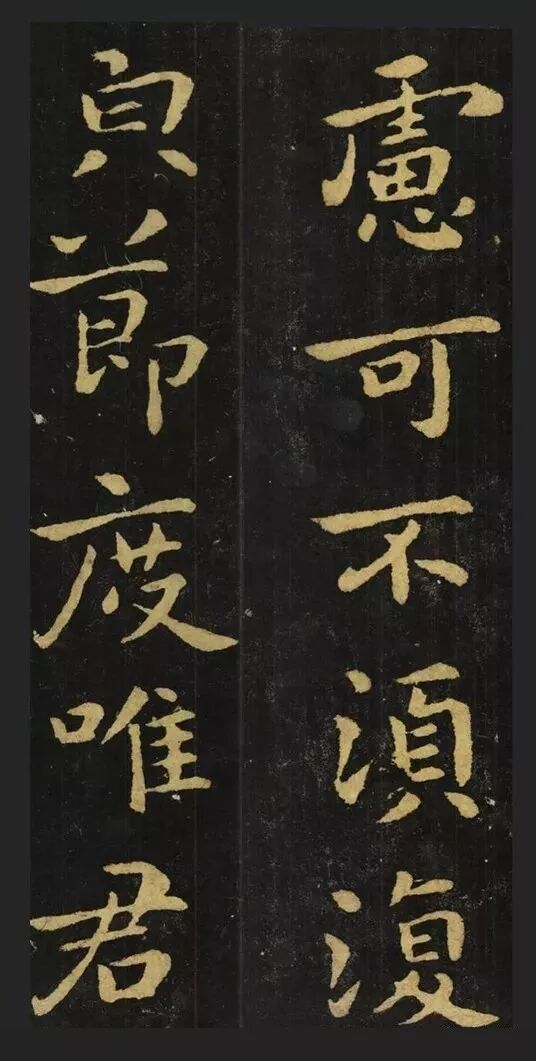 慮可不須復
節度唯君